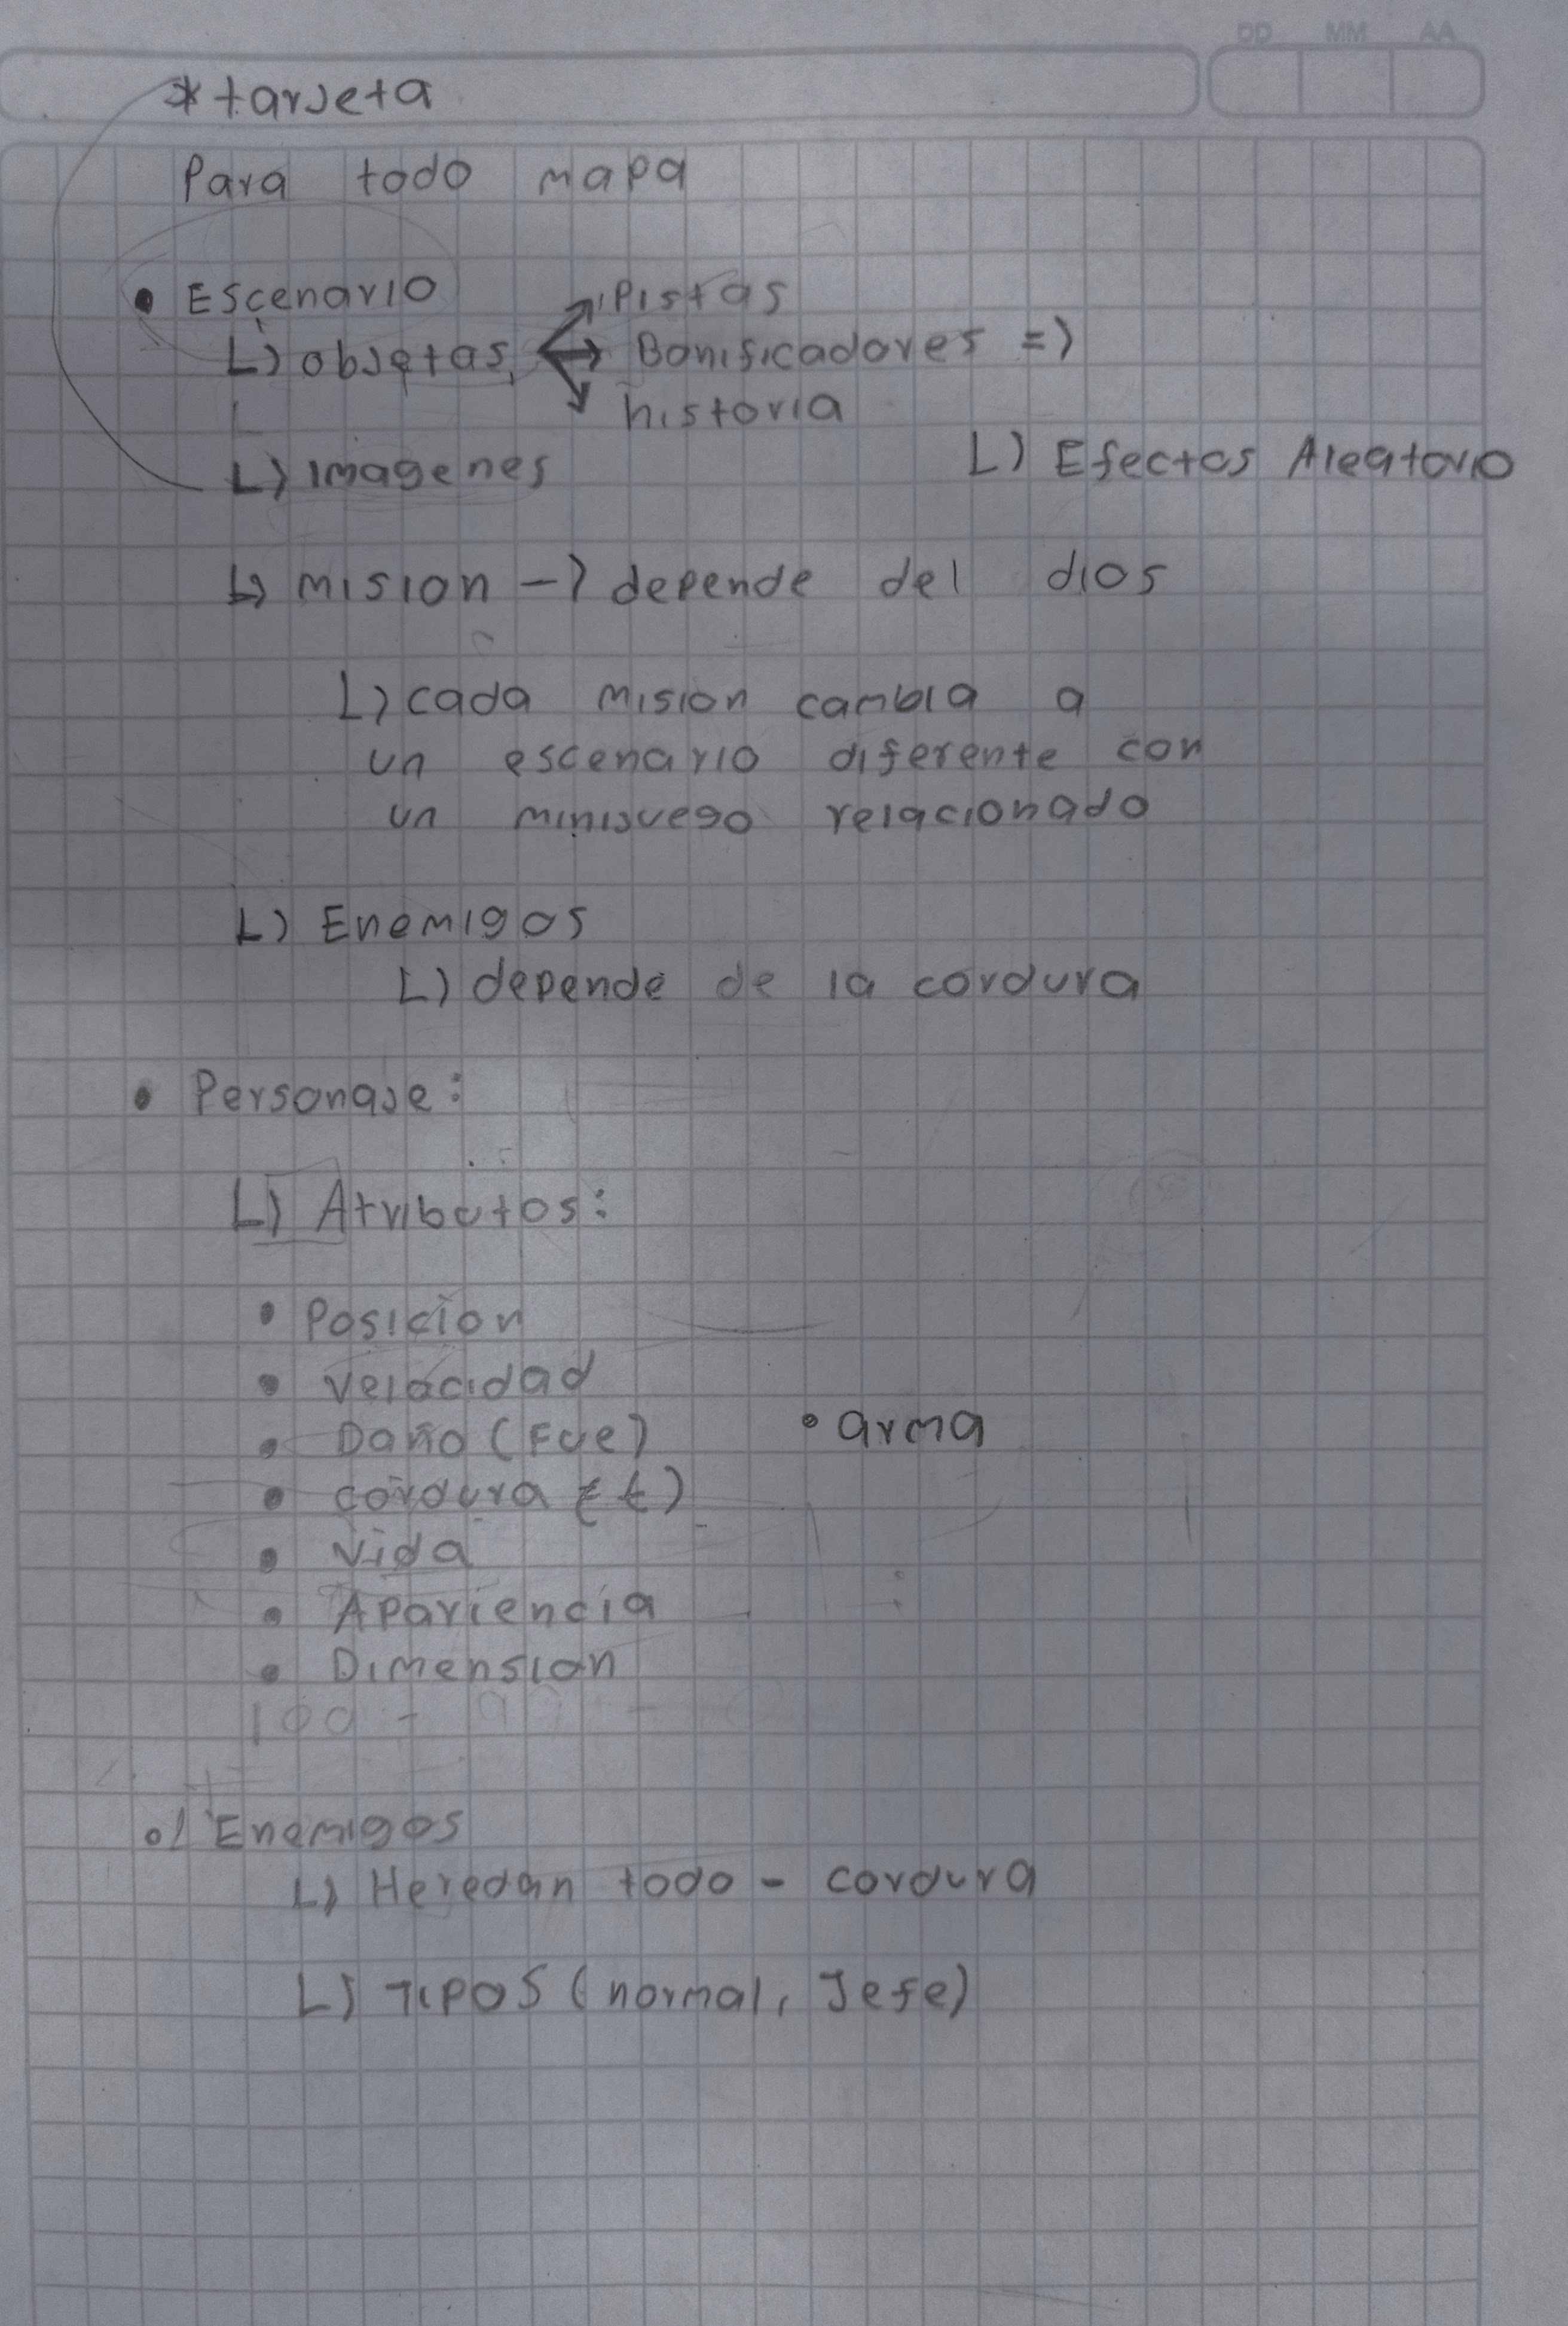 DD MM AA
* tarjeta
Para todo mapa
• Escenario
L) objetos → Pistas
→ Bonificadores =>
→ historia
L) Efectos Aleatorio
L) Imagenes
L) mision -> depende del dios
L) cada mision cambia a
un escenario diferente con
un minijuego relacionado
L) Enemigos
L) depende de la cordura
• Personaje:
L) Atributos:
• Posicion
• velocidad
• Daño (Fue)
• arma
• cordura
• vida
• Apariencia
• Dimension
Enemigos
L) Heredan todo - cordura
L) TIPOS (normal, Jefe)